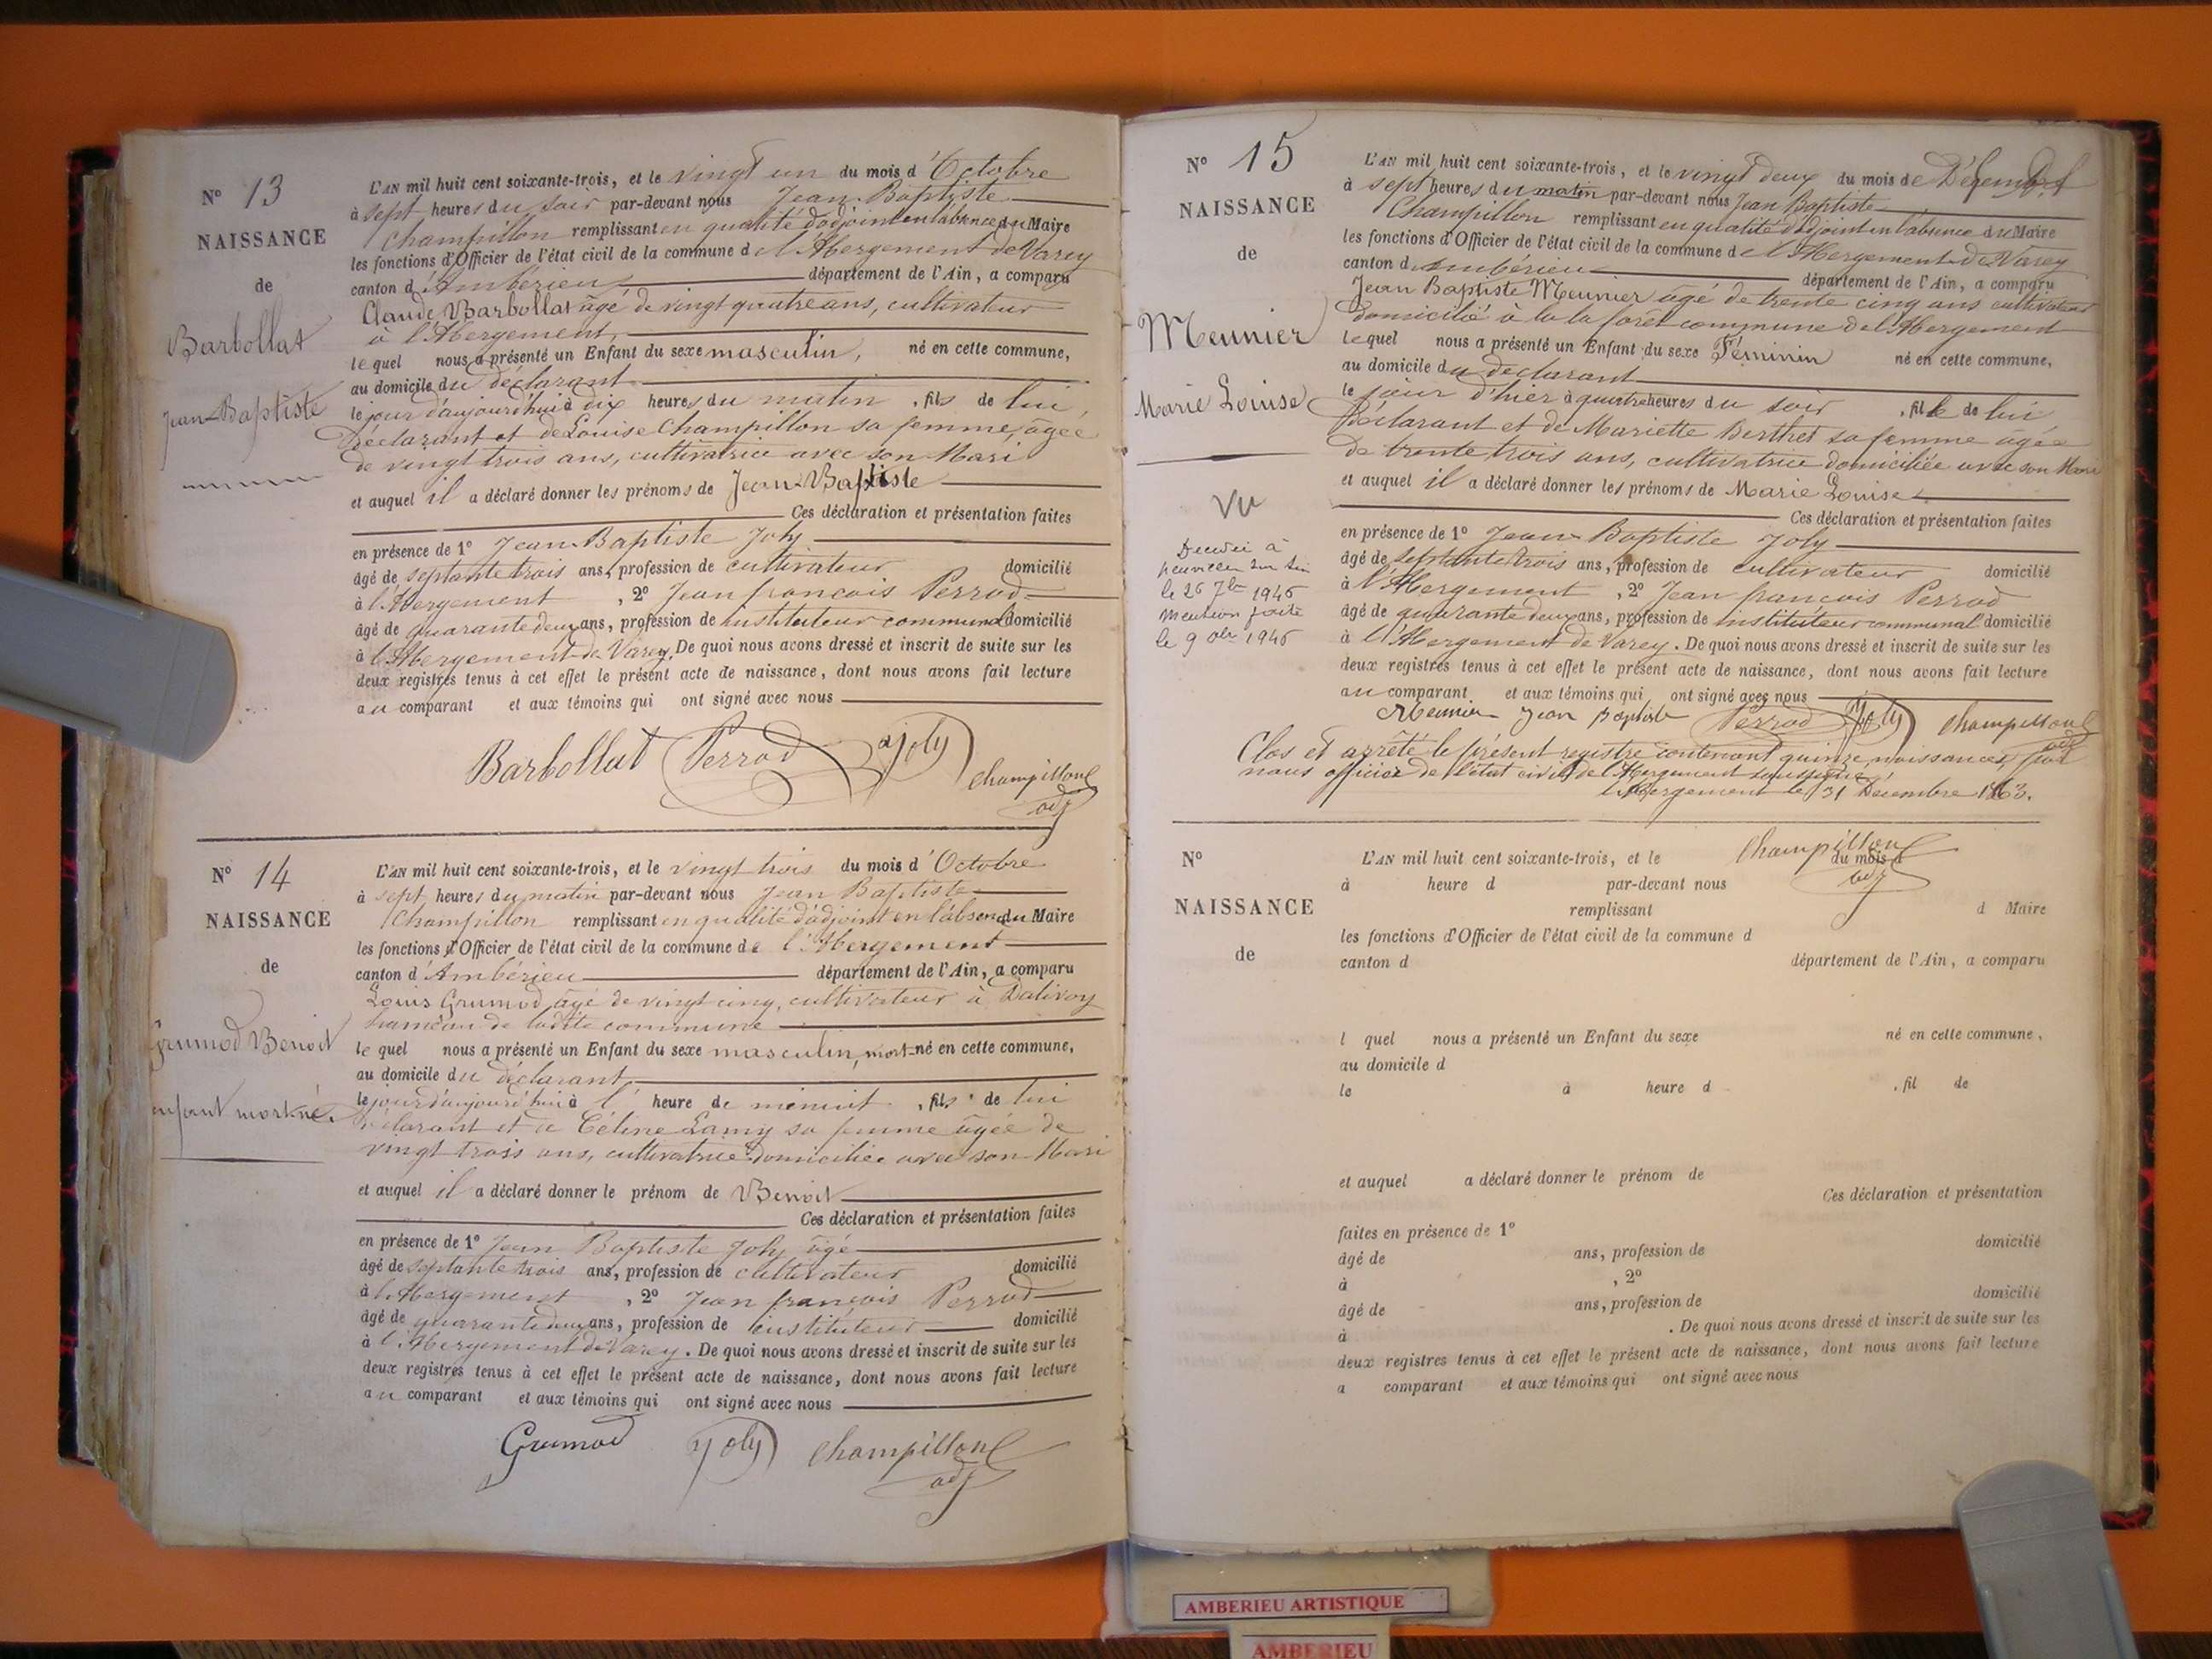 N° 13
NAISSANCE
de
Barbollat
Jean-Baptiste
L'AN mil huit cent soixante-trois, et le vingt un du mois d'Octobre
à sept heures du soir par-devant nous Jean Baptiste
Champillon remplissant en qualité d'adjoint en l'absence du Maire
les fonctions d'Officier de l'état civil de la commune de l'Abergement de Varey
canton d'Ambérieu département de l'Ain, a comparu
Claude Barbollat âgé de vingt quatre ans, cultivateur
à l'Abergement,
lequel nous a présenté un Enfant du sexe masculin, né en cette commune,
au domicile du déclarant
le jour d'aujourd'hui à dix heures du matin, fils de lui
Déclarant et de Louise Champillon sa femme, âgée
de vingt trois ans, cultivatrice avec son Mari
et auquel il a déclaré donner les prénoms de Jean-Baptiste
Ces déclaration et présentation faites
en présence de 1° Jean-Baptiste Joly
âgé de septante trois ans, profession de cultivateur domicilié
à l'Abergement, 2° Jean françois Perrod
âgé de quarante deux ans, profession de instituteur communal domicilié
à l'Abergement de Varey. De quoi nous avons dressé et inscrit de suite sur les
deux registres tenus à cet effet le présent acte de naissance, dont nous avons fait lecture
au comparant et aux témoins qui ont signé avec nous
Barbollat Perrod Joly Champillon
adj
N° 14
NAISSANCE
de
Grumod Benoit
enfant mort-né.
L'AN mil huit cent soixante-trois, et le vingt trois du mois d'Octobre
à sept heures du matin par-devant nous Jean Baptiste
Champillon remplissant en qualité d'adjoint en l'absence du Maire
les fonctions d'Officier de l'état civil de la commune de l'Abergement
canton d'Ambérieu département de l'Ain, a comparu
Louis Grumod âgé de vingt cinq, cultivateur à Dalivoy
hameau de ladite commune
lequel nous a présenté un Enfant du sexe masculin, mort-né en cette commune,
au domicile du déclarant,
le jour d'aujourd'hui à l' heure de minuit, fils de lui
Déclarant et de Céline Lamy sa femme âgée de
vingt trois ans, cultivatrice domiciliée avec son Mari
et auquel il a déclaré donner le prénom de Benoit
Ces déclaration et présentation faites
en présence de 1° Jean Baptiste Joly âgé
âgé de septante trois ans, profession de cultivateur domicilié
à l'Abergement, 2° Jean françois Perrod
âgé de quarante deux ans, profession de instituteur domicilié
à l'Abergement de Varey. De quoi nous avons dressé et inscrit de suite sur les
deux registres tenus à cet effet le présent acte de naissance, dont nous avons fait lecture
au comparant et aux témoins qui ont signé avec nous
Grumod Joly Champillon
adj
N° 15
NAISSANCE
de
Meunier
Marie Louise
Vu
le 26 7bre 1946
mention faite
le 9 1946
L'AN mil huit cent soixante-trois, et le vingt deux du mois de Décembre
à sept heures du matin par-devant nous Jean Baptiste
Champillon remplissant en qualité d'adjoint en l'absence du Maire
les fonctions d'Officier de l'état civil de la commune de l'Abergement de Varey
canton d'Ambérieu département de l'Ain, a comparu
Jean Baptiste Meunier âgé de trente cinq ans cultivateur
domicilié à la la forêt commune de l'Abergement
lequel nous a présenté un Enfant du sexe Féminin né en cette commune,
au domicile du déclarant
le jour d'hier à quatre heures du soir, fille de lui
Déclarant et de Mariette Berthet sa femme âgée
de trente trois ans, cultivatrice domiciliée avec son Mari
et auquel il a déclaré donner les prénoms de Marie Louise
Ces déclaration et présentation faites
en présence de 1° Jean Baptiste Joly
âgé de septante trois ans, profession de cultivateur domicilié
à l'Abergement, 2° Jean françois Perrod
âgé de quarante deux ans, profession de instituteur communal domicilié
à l'Abergement de Varey. De quoi nous avons dressé et inscrit de suite sur les
deux registres tenus à cet effet le présent acte de naissance, dont nous avons fait lecture
au comparant et aux témoins qui ont signé avec nous
Meunier Jean Baptiste Perrod Joly Champillon
adj
Clos et arrêté le présent registre contenant quinze naissances par
nous officier de l'état civil de l'Abergement soussigné
l'Abergement le 31 Décembre 1863.
Champillon
adj
N°
NAISSANCE
de
L'AN mil huit cent soixante-trois, et le du mois d
à heure d par-devant nous
remplissant d Maire
les fonctions d'Officier de l'état civil de la commune d
canton d département de l'Ain, a comparu
l quel nous a présenté un Enfant du sexe né en cette commune,
au domicile d
le à heure d , fil de
et auquel a déclaré donner le prénom de
Ces déclaration et présentation
faites en présence de 1°
âgé de ans, profession de domicilié
à , 2°
âgé de ans, profession de domicilié
à . De quoi nous avons dressé et inscrit de suite sur les
deux registres tenus à cet effet le présent acte de naissance, dont nous avons fait lecture
a comparant et aux témoins qui ont signé avec nous
AMBERIEU ARTISTIQUE
AMBERIEU